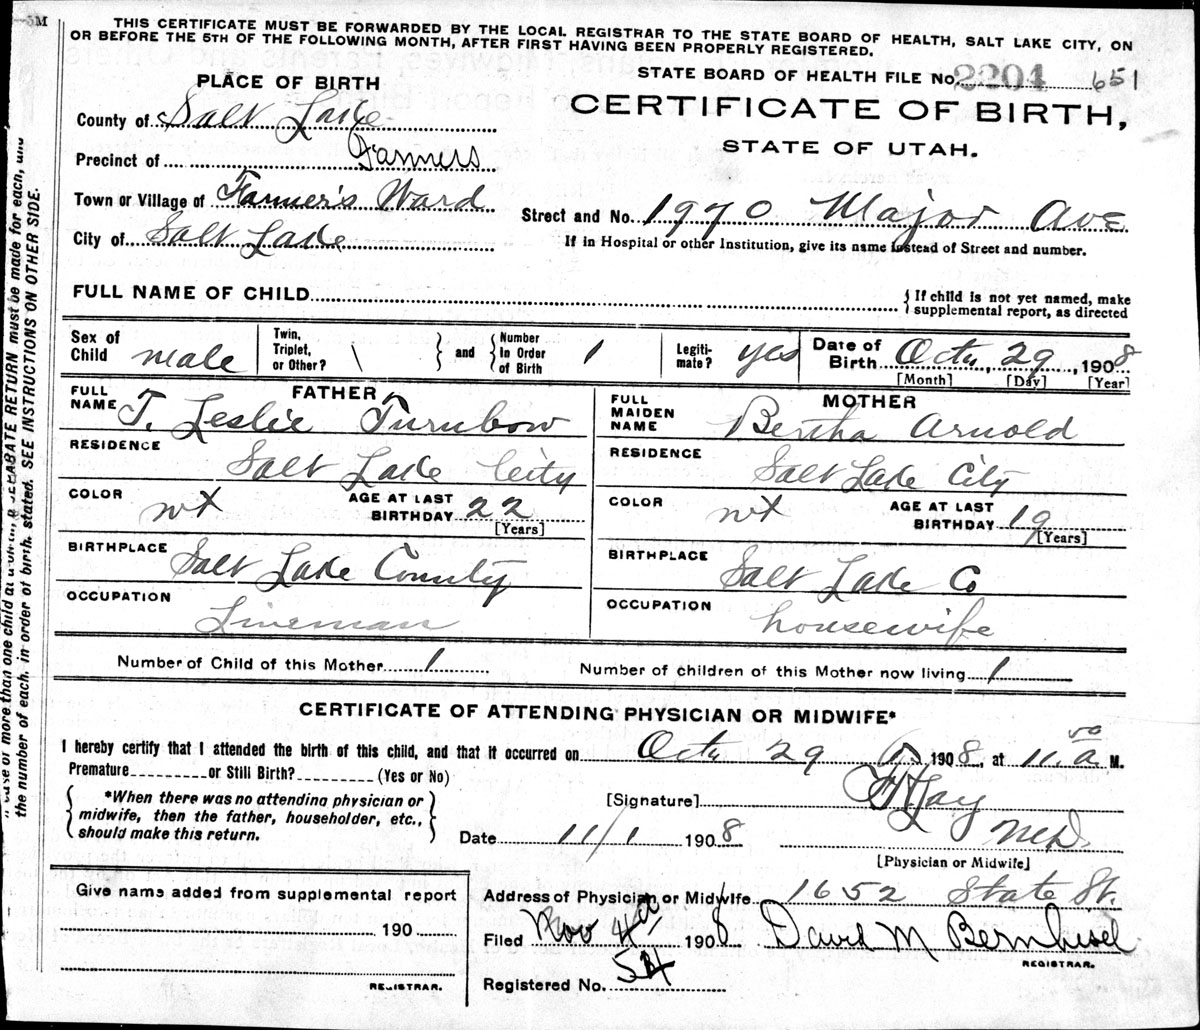 THIS CERTIFICATE MUST BE FORWARDED BY THE LOCAL REGISTRAR TO THE STATE BOARD OF HEALTH, SALT LAKE CITY, ON
OR BEFORE THE 5TH OF THE FOLLOWING MONTH, AFTER FIRST HAVING BEEN PROPERLY REGISTERED.
STATE BOARD OF HEALTH FILE No. 2204 651
PLACE OF BIRTH
CERTIFICATE OF BIRTH,
STATE OF UTAH.
County of Salt Lake
Precinct of Farmers
Town or Village of Farmer's Ward
City of Salt Lake
Street and No. 1970 Major Ave
If in Hospital or other Institution, give its name instead of Street and number.
FULL NAME OF CHILD
If child is not yet named, make
supplemental report, as directed
Sex of Child male
Twin, Triplet, or Other? \ and Number In Order of Birth 1
Legiti-mate? yes
Date of Birth Oct, 29, 1908
[Month] [Day] [Year]
FATHER
FULL NAME T. Leslie Turnbow
RESIDENCE Salt Lake City
COLOR wt AGE AT LAST BIRTHDAY 22
[Years]
BIRTHPLACE Salt Lake County
OCCUPATION Lineman
MOTHER
FULL MAIDEN NAME Bertha Arnold
RESIDENCE Salt Lake City
COLOR wt AGE AT LAST BIRTHDAY 19
[Years]
BIRTHPLACE Salt Lake Co
OCCUPATION housewife
Number of Child of this Mother 1 Number of children of this Mother now living 1
CERTIFICATE OF ATTENDING PHYSICIAN OR MIDWIFE*
I hereby certify that I attended the birth of this child, and that it occurred on Oct 29 1908, at 11 a M.
Premature or Still Birth? (Yes or No)
*When there was no attending physician or
midwife, then the father, householder, etc.,
should make this return.
[Signature]
MD.
Date 11/1 1908
[Physician or Midwife]
Give name added from supplemental report
190
REGISTRAR.
Address of Physician or Midwife 1652 State St.
Filed Nov 4 1908 David M Bernhisel
REGISTRAR.
Registered No. 54
the number of each, in order of birth, stated. SEE INSTRUCTIONS ON OTHER SIDE.